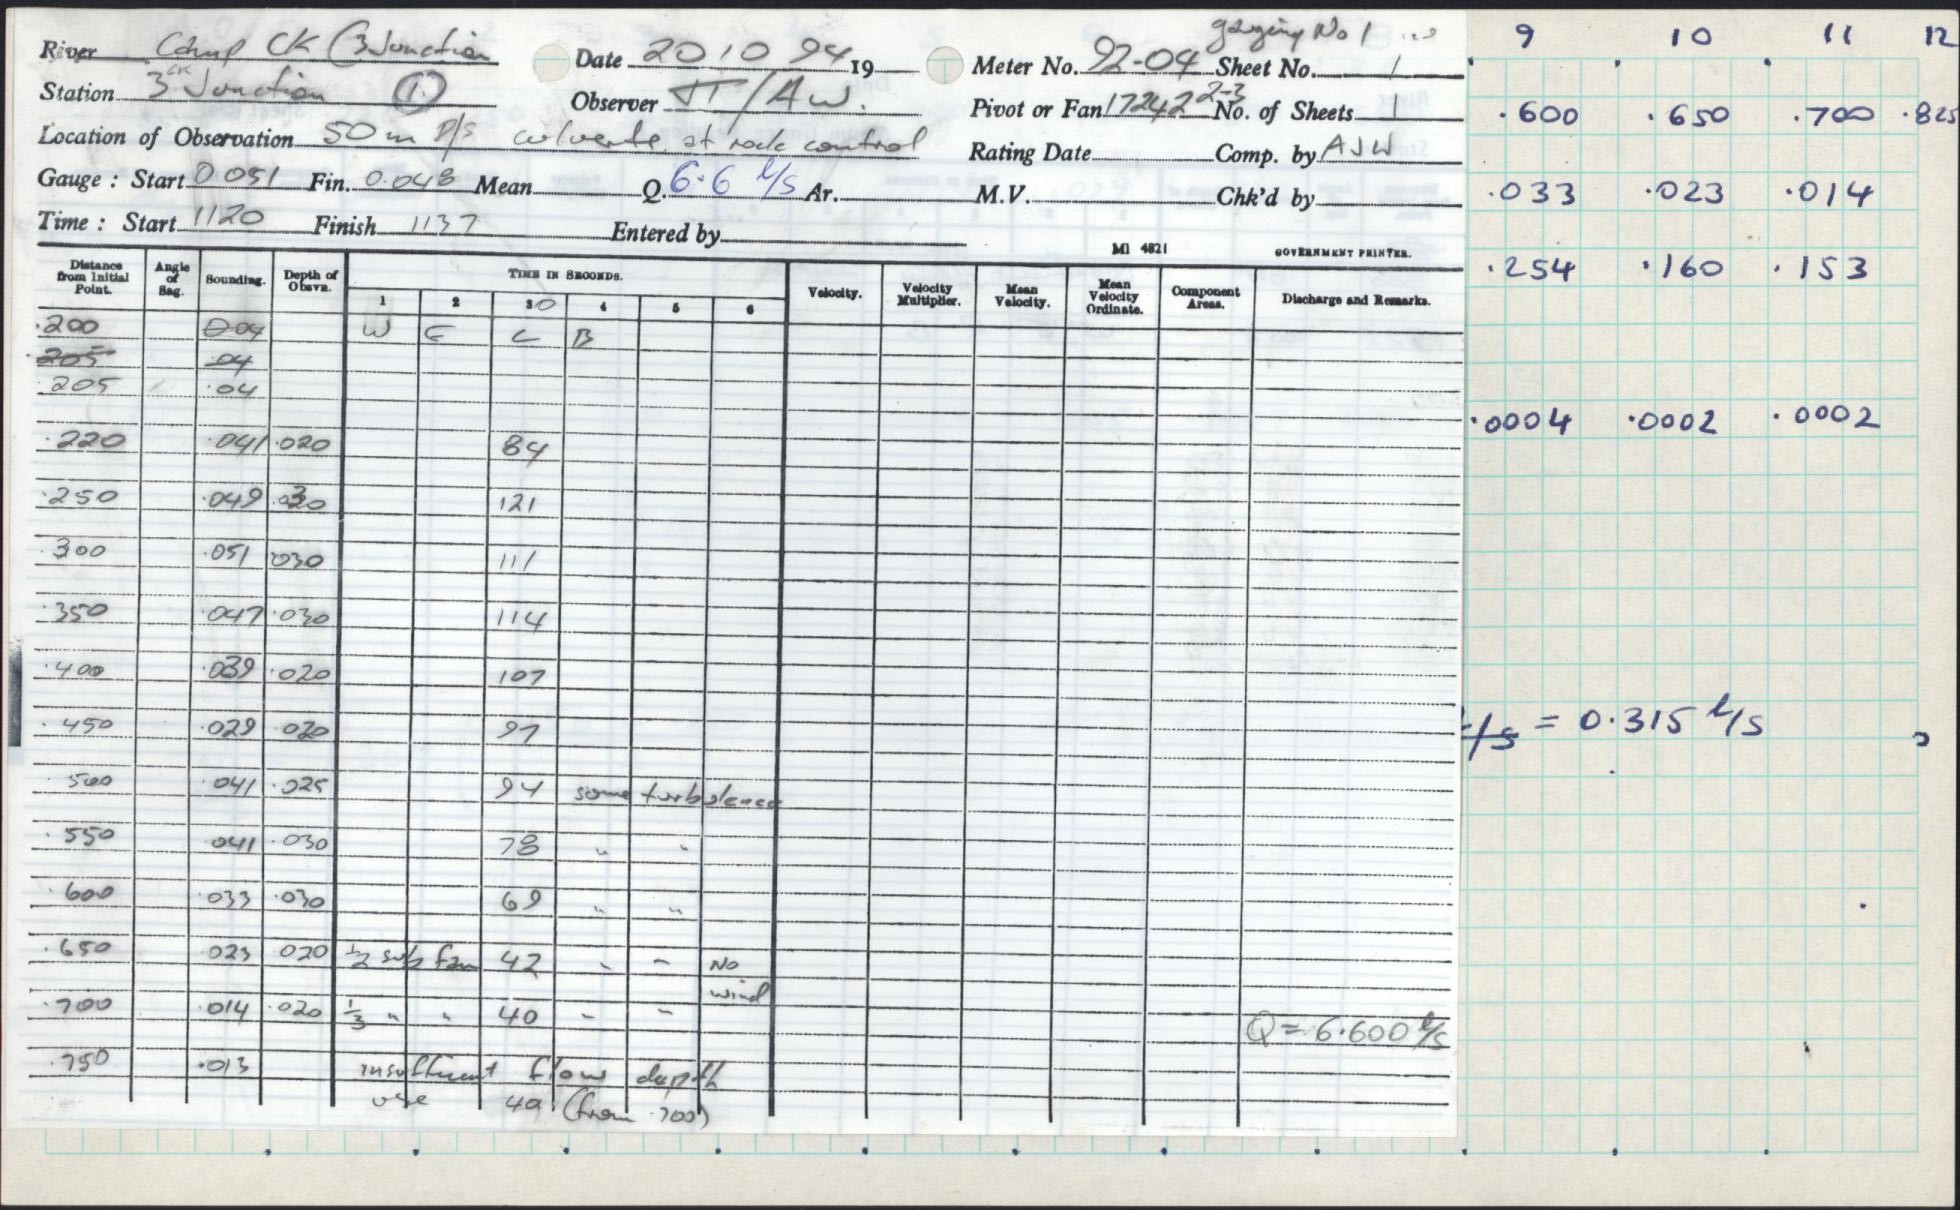 gauging No 1
River Camp CK (3 Junction Date 20 10 94 19 Meter No. 92-04 Sheet No. 1
Station 3 CK Junction (1.) Observer JT/AW. Pivot or Fan 17242 2-3 No. of Sheets 1
Location of Observation 50m D/S culverts at rock control Rating Date Comp. by AJW
Gauge : Start 0.051 Fin. 0.048 Mean Q. 6.6 l/s Ar. M.V. Chk'd by
Time : Start 1120 Finish 1137 Entered by
MI 4821 GOVERNMENT PRINTER.
Distance from Initial Point. Angle of Sag. Sounding. Depth of Obsvn. TIME IN SECONDS. Velocity. Velocity Multiplier. Mean Velocity. Mean Velocity Ordinate. Component Areas. Discharge and Remarks.
1 2 30 4 5 6
.200 0.04 W E C B
.205 .04
.205 .04
.220 .041 .020 84
.250 .049 .030 121
.300 .051 .030 111
.350 .047 .030 114
.400 .039 .020 107
.450 .029 .020 97
.500 .041 .025 94 some turbulence
.550 .041 .030 78 " "
.600 .033 .030 69 " "
.650 .023 .020 1/2 sub fan 42 " " No wind
.700 .014 .020 1/3 " " 40 " "
Q = 6.600 l/s
.750 .013 insufficient flow depth
use 40 (from .700)
9 10 11 12
.600 .650 .700 .825
.033 .023 .014
.254 .160 .153
.0004 .0002 .0002
l/s = 0.315 l/s